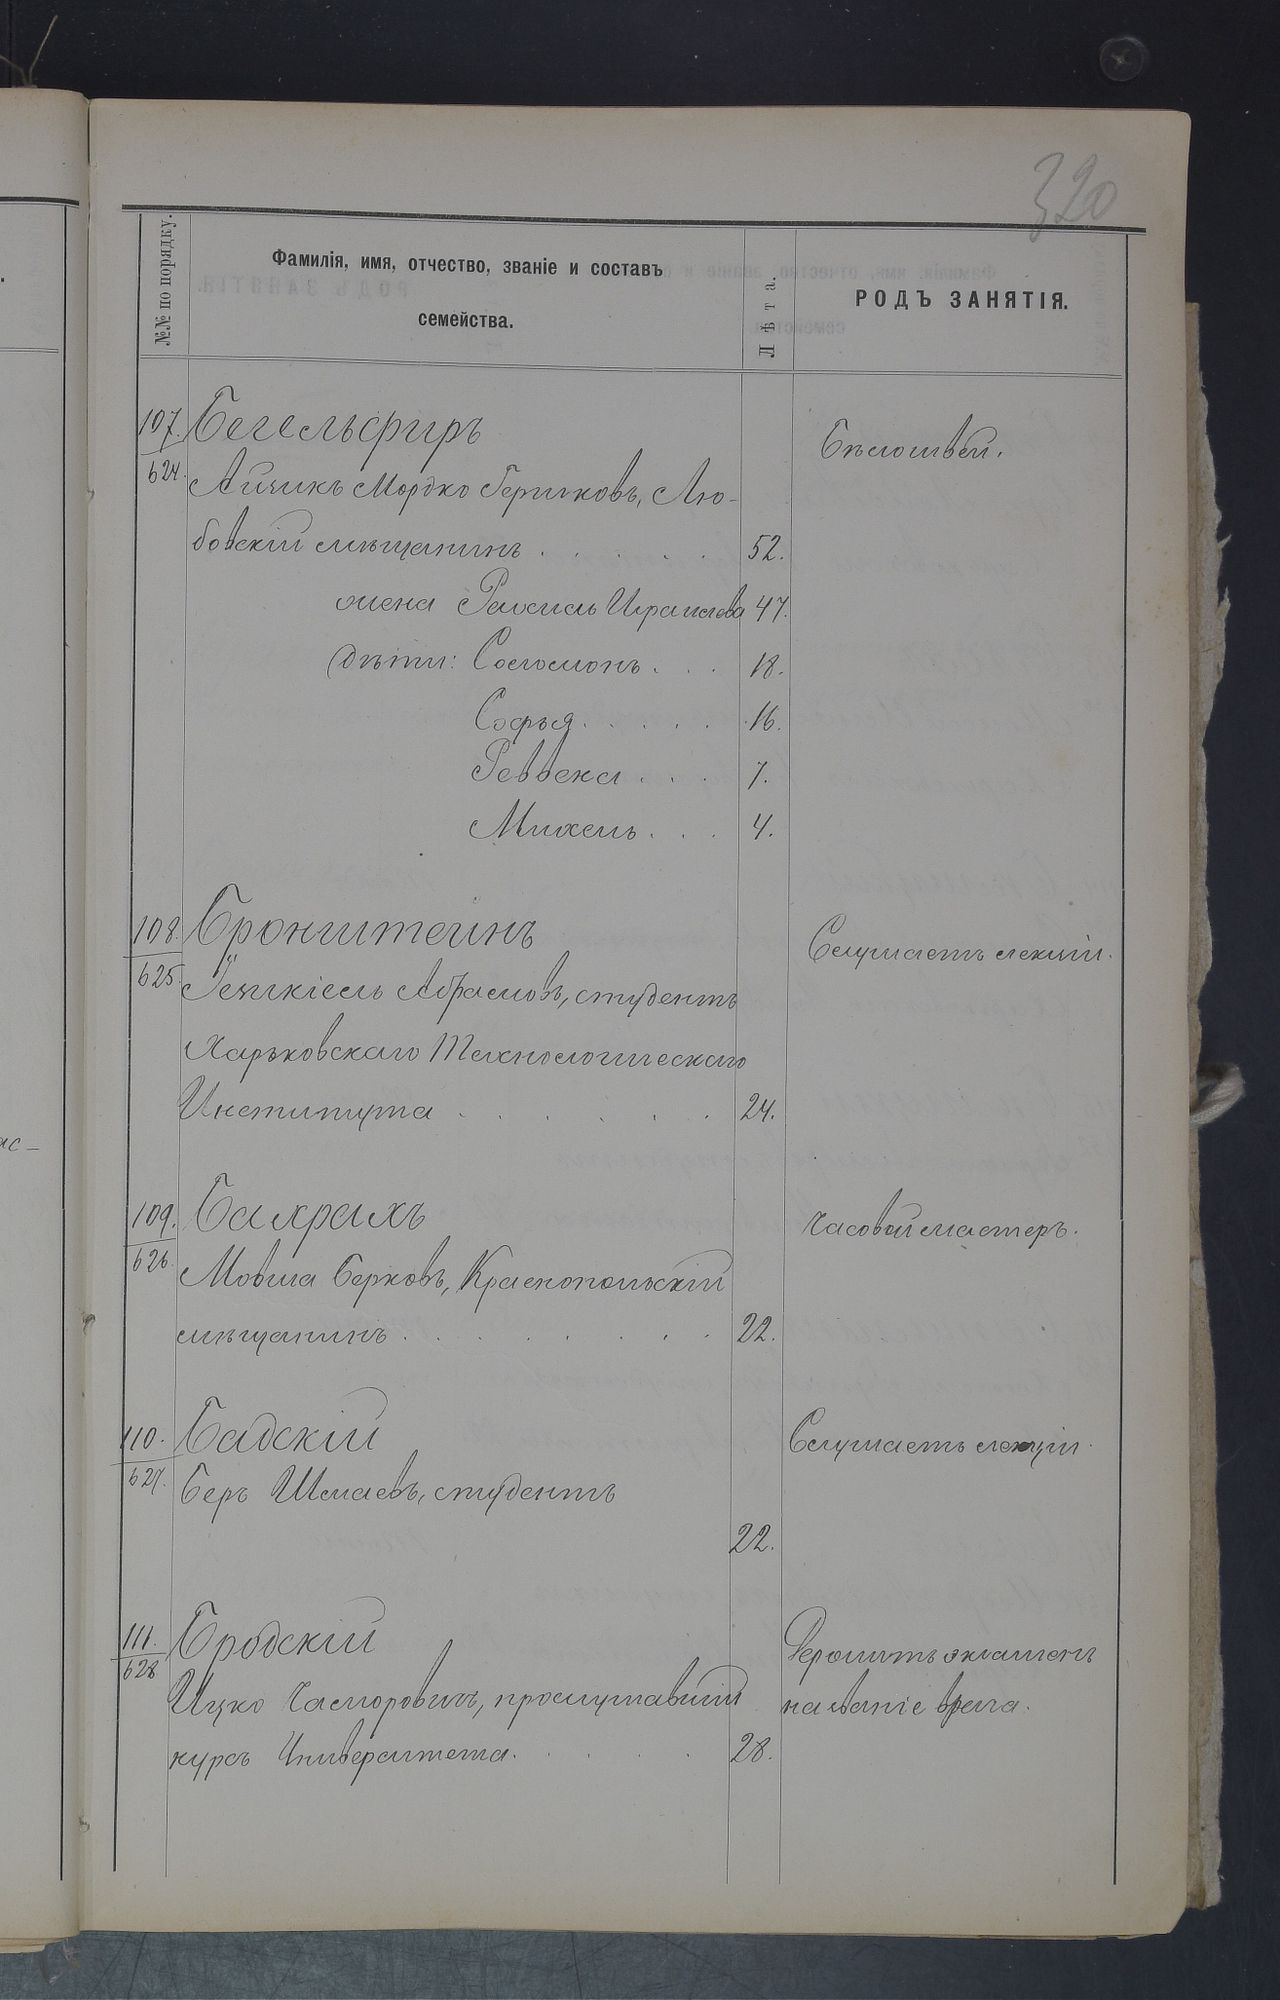 320
№№ по порядку.
Фамилія, имя, отчество, званіе и составъ
семейства.
Лѣта.
РОДЪ ЗАНЯТІЯ.
107. Бегельфиръ
Бѣлошвей.
624. Айзикъ Мордко Гершковъ, Лю-
бовскій мѣщанинъ . . . . . . 52.
жена Рахиль Израилева 47.
дѣти: Соломонъ . . . 18.
Софья . . . . . 16.
Ревека . . . 7.
Михель . . . 4.
108. Бронштейнъ
Слушаетъ лекціи.
625. Іезекіель Абрамовъ, студентъ
Харьковскаго Технологическаго
Института . . . . . . 24.
109. Бахрахъ
Часовой мастеръ.
626. Мовша Берковъ, Краснопольскій
мѣщанинъ . . . . . . . . 22.
110. Бадскій
Слушаетъ лекціи.
627. Беръ Шмаевъ, студентъ
22.
111. Бродскій
Держитъ экзаменъ
628 Ицко прослушавшій
на званіе врача.
курсъ Университета. . . . . 28.
ас-